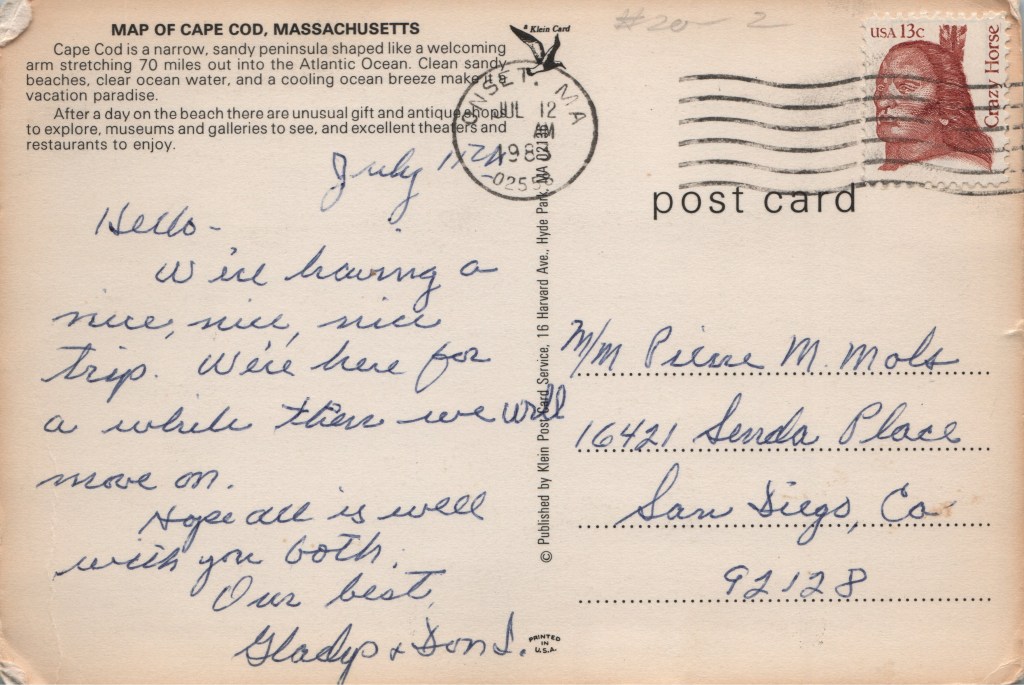 MAP OF CAPE COD, MASSACHUSETTS
Cape Cod is a narrow, sandy peninsula shaped like a welcoming
arm stretching 70 miles out into the Atlantic Ocean. Clean sandy
beaches, clear ocean water, and a cooling ocean breeze make it a
vacation paradise.
After a day on the beach there are unusual gift and antique shops
to explore, museums and galleries to see, and excellent theaters and
restaurants to enjoy.
A Klein Card
#20- 2
ONSET, MA
JUL 12
AM
1983
-02558
USA 13c
Crazy Horse
post card
July 11
Hello -
We're having a
nice, nice, nice
trip. We're here for
a while then we will
move on.
Hope all is well
with you both.
Our best,
Gladys & Don S.
© Published by Klein Post Card Service, 16 Harvard Ave., Hyde Park, MA 02136
M/M Pierre M. Mols
16421 Senda Place
San Diego, Ca
92128
PRINTED
IN
U.S.A.